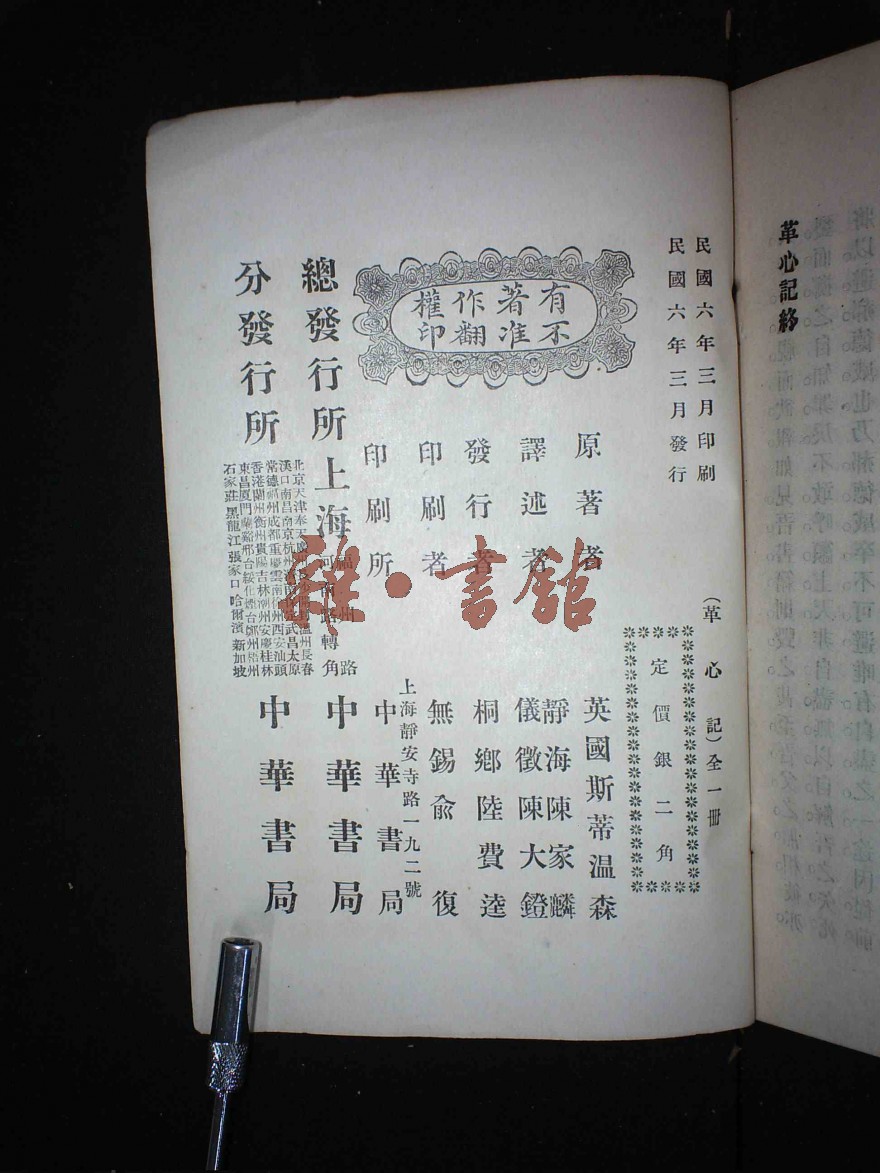 革心記終
民國六年三月印刷
民國六年三月發行
(革心記)全一冊
定價銀二角
有著作權
不准翻印
原著者 英國斯蒂溫森
譯述者 靜海陳家麟
儀徵陳大鐙
發行者 桐鄉陸費逵
印刷者 無錫俞復
印刷所 上海靜安寺路一九二號
中華書局
總發行所 上海 福州路
河南路轉角
中華書局
分發行所
北京天津奉天 溫州長春
漢口南昌南京杭州 武昌太原
常德 州成都重慶雲南 州西安汕頭
香港 州衡州貴陽吉林 州安慶桂林
東昌廈門蘭谿邢台綏化煙台鄭州 州
石家莊黑龍江張家口哈爾濱新加坡
中華書局
雜·書館